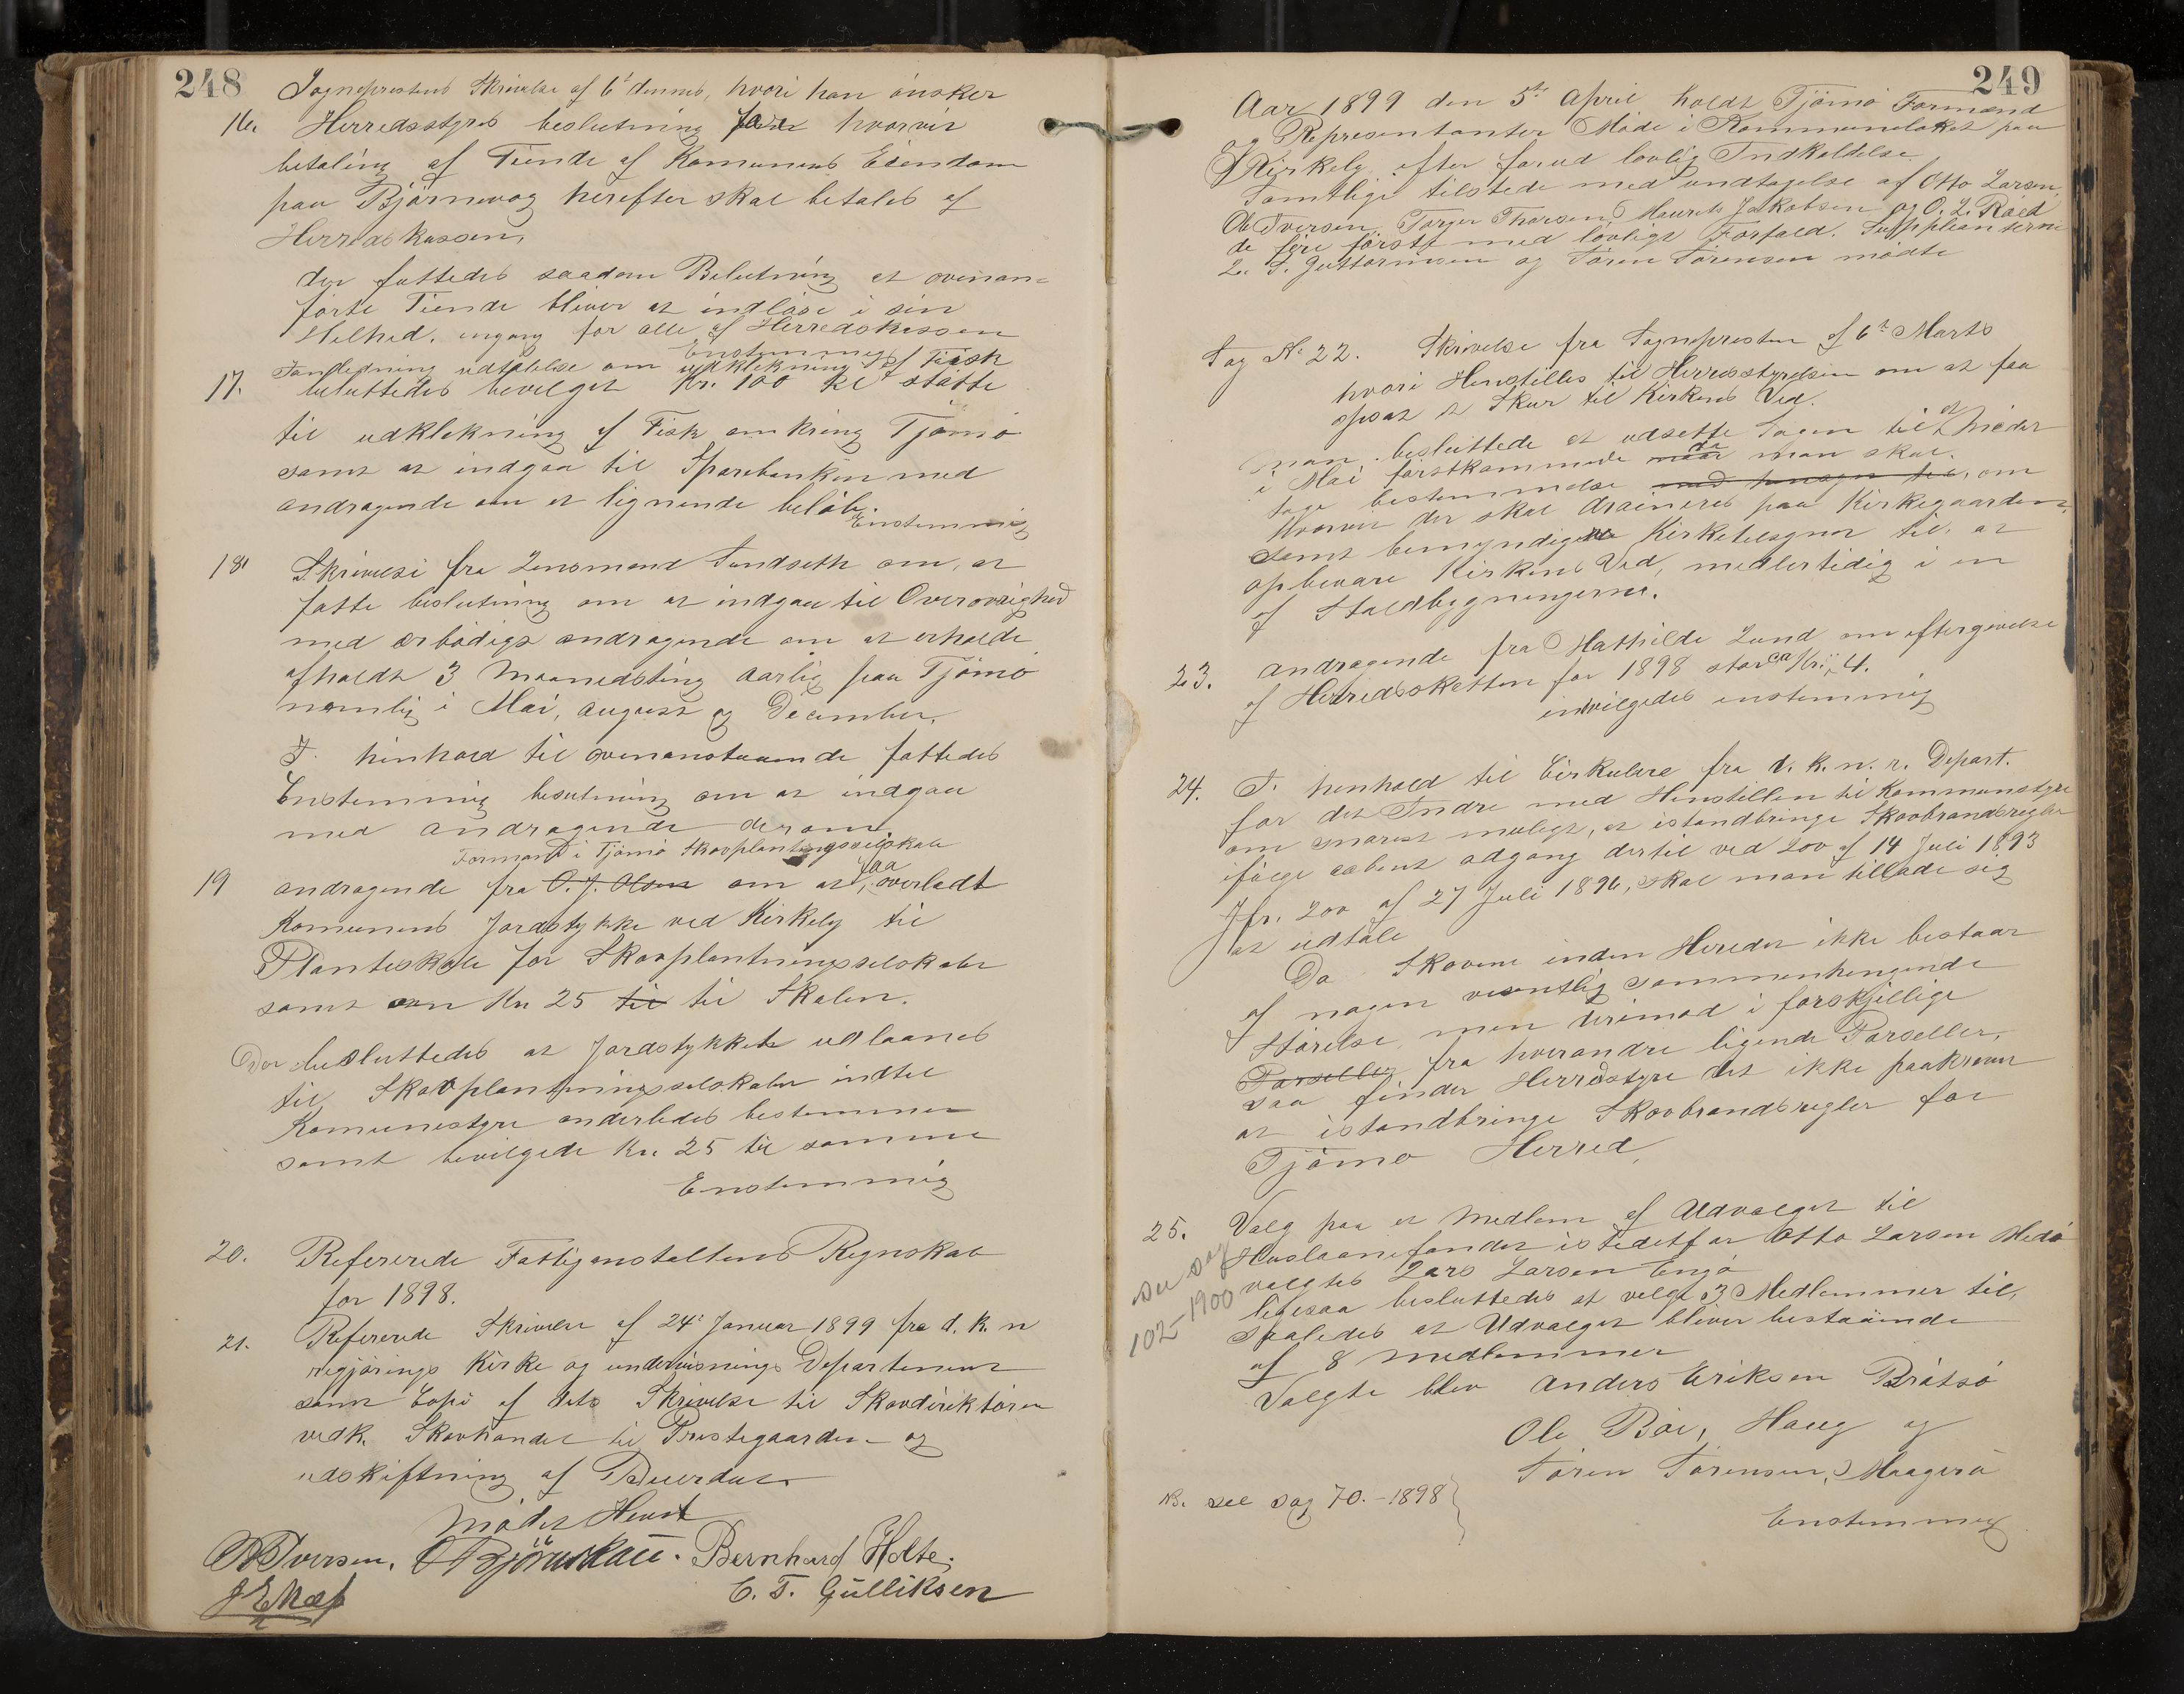 248
Sogneprestens Skrivelse af 6' dennes, hvori han önsker
16. Herredsstyres beslutning for hvorvit
betaling af Tiende af Komunens Eiendom
paa Bjørnevog herefter skal betales af
Herredskassen,
der fattedes saadan Belutning at ovenan=
förte Tiende bliver at indløse i sin
Helhed. engang for alle af Herredskassen
Enstemmig
17. Fandledning udtalelse om udklekning af Fisk
besluttedes bevilget Kr. 100 til støtte
til udklekning af Fisk omkring Tjømø
samt at indgaa til Sparebanken med
andragende om et lignende beløb.
Enstemmig
18 Skrivelse fra Lensmand Sundseth om, at
fatte beslutning om at indgaa til Overøvrighed
med ærbødigst andragende om at erholde
afholdt 3 Maanedsting aarlig paa Tjømø
nemlig i Mai, august og December.
I hinhold til ovenanstaaende fattedes
Enstemmig beslutning om at indgaa
med andragende derom
Formand i Tjømø Skovplantningsselskab
19 andragende fra O. J. Olsen om at faa overladt
Komunens Jordstykke ved Kirkely til
Planteskole for Skovplantningsselskabet
samt en Kr. 25 til til Skolen.
Der besluttedes at Jordstykket udlaanes
til Skovplantningsselskabet indtil
Komunestyre anderledes bestemmer
samt bevilgede Kr. 25 til samme
Enstemmig
20. Refererede Fattiganstaltens Regnskab
for 1898.
21. Refererede Skrivelse af 24' Januar 1899 fra d. k. n
regjørings Kirke og undervisnings Departement
samt Copi af dets Skrivelse til Skovdirektøren
vedk. Skovhandel til Prestegaarden og
udskiftning af
Mødet Hevet
O Iversen. O Bjørnskau. Bernhard Holte.
C. T. Gülliksen
249
Aar 1899 den 5te April holdt Tjømø Formand
og Representanter Møde i Kommunelokalet paa
Kirkely efter forud lovlig Indkaldelse
Samtlige tilstede med undtagelse af Otto Larsen,
Ole Iversen, Torger Thorsen, Maurits Jakobsen og O. L. Røed
de fire første med lovligt Forfald. Supplianterne
L. S. Guttormsen og Søren Sørensen mødte
Sag No 22. Skrivelse fra Sognepresten af 6te Marts
hvori Henstilles til Herredsstyrelsen om at faa
opsat et Skur til Kirkens Ved.
Man besluttede at udsette Sagen til et Mødet
i Mai førstkommende naar da man skal.
tage bestemmelse med hensyn til, om
Hvorvit der skal draineres paa Kirkegaarden,
samt bemyndigede Kirketilsynet til at
opbevare Kirkens Ved, midlertidig i en
af Staldbygningerne.
23. andragende fra Mathilde Lund om eftergivelse
af Herredsskatten for 1898 stor ca Kr. 4.
indvilgedes enstemmig
24. I henhold til Cirkulære fra d. k. n. r. Depart.
for det Indre med Henstillen til Kommunestyre
om snarest muligt, at istandbringe Skovbrandsregler
ifølge aabent adgang dertil ved Lov af 14 Juli 1893
Jfr. Lov af 27 Juli 1896, skal man tillade sig
at udtale
Da Skovene inden Heredet ikke bestaar
af nogen vesentlig sammenhengende
Størelse, men derimod i forskjellige
Parseller fra hverandre ligende Parseller,
saa finder Herredstyre det ikke paakrevet
at istandbringe Skovbrandsregler for
Tjømø Herred.
25. Valg paa et Medlem af Udvalget til
Huslaanefondet istedetfor Otto Larsen Medø
valgtes Lars Larsen Engø
ligesaa besluttedes at velge 3 Medlemmer til,
saaledes at Udvalget bliver bestaaende
af 8 medlemmer
see sag
102-1900
Valgte blev Anders Eriksen Bråtsø
Ole Bøe, Haug og
Søren Sørensen, Maagerø
NB. see sag 70.-1898
Enstemmig